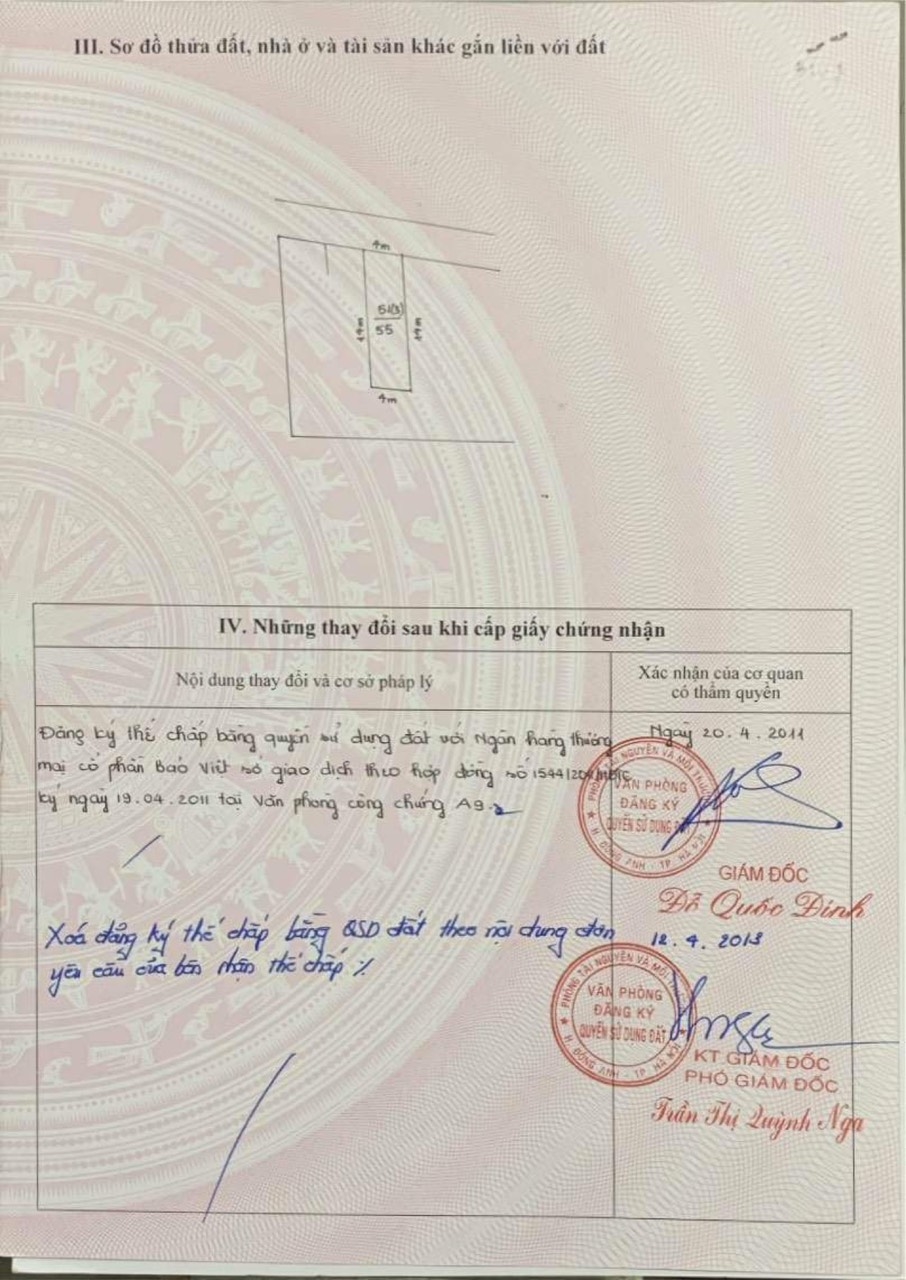 III. Sơ đồ thửa đất, nhà ở và tài sản khác gắn liền với đất
4m
51(3)
55
19m
19m
4m
IV. Những thay đổi sau khi cấp giấy chứng nhận
Nội dung thay đổi và cơ sở pháp lý
Xác nhận của cơ quan
có thẩm quyền
Đăng ký thế chấp bằng quyền sử dụng đất với Ngân hàng thương
mại cổ phần Bảo Việt số giao dịch theo hợp đồng số
ký ngày 19.04.2011 tại Văn phòng công chứng A9
Ngày 20.4.2011
PHÒNG TÀI NGUYÊN VÀ MÔI TRƯỜNG
VĂN PHÒNG
ĐĂNG KÝ
QUYỀN SỬ DỤNG ĐẤT
H. ĐÔNG ANH - TP. HÀ NỘI
GIÁM ĐỐC
Đỗ Quốc Đính
Xoá đăng ký thế chấp bằng QSD đất theo nội dung đơn
yêu cầu của bên nhận thế chấp ./.
12.4.2013
PHÒNG TÀI NGUYÊN VÀ MÔI TRƯỜNG
VĂN PHÒNG
ĐĂNG KÝ
QUYỀN SỬ DỤNG ĐẤT
H. ĐÔNG ANH - TP. HÀ NỘI
KT GIÁM ĐỐC
PHÓ GIÁM ĐỐC
Trần Thị Quỳnh Nga